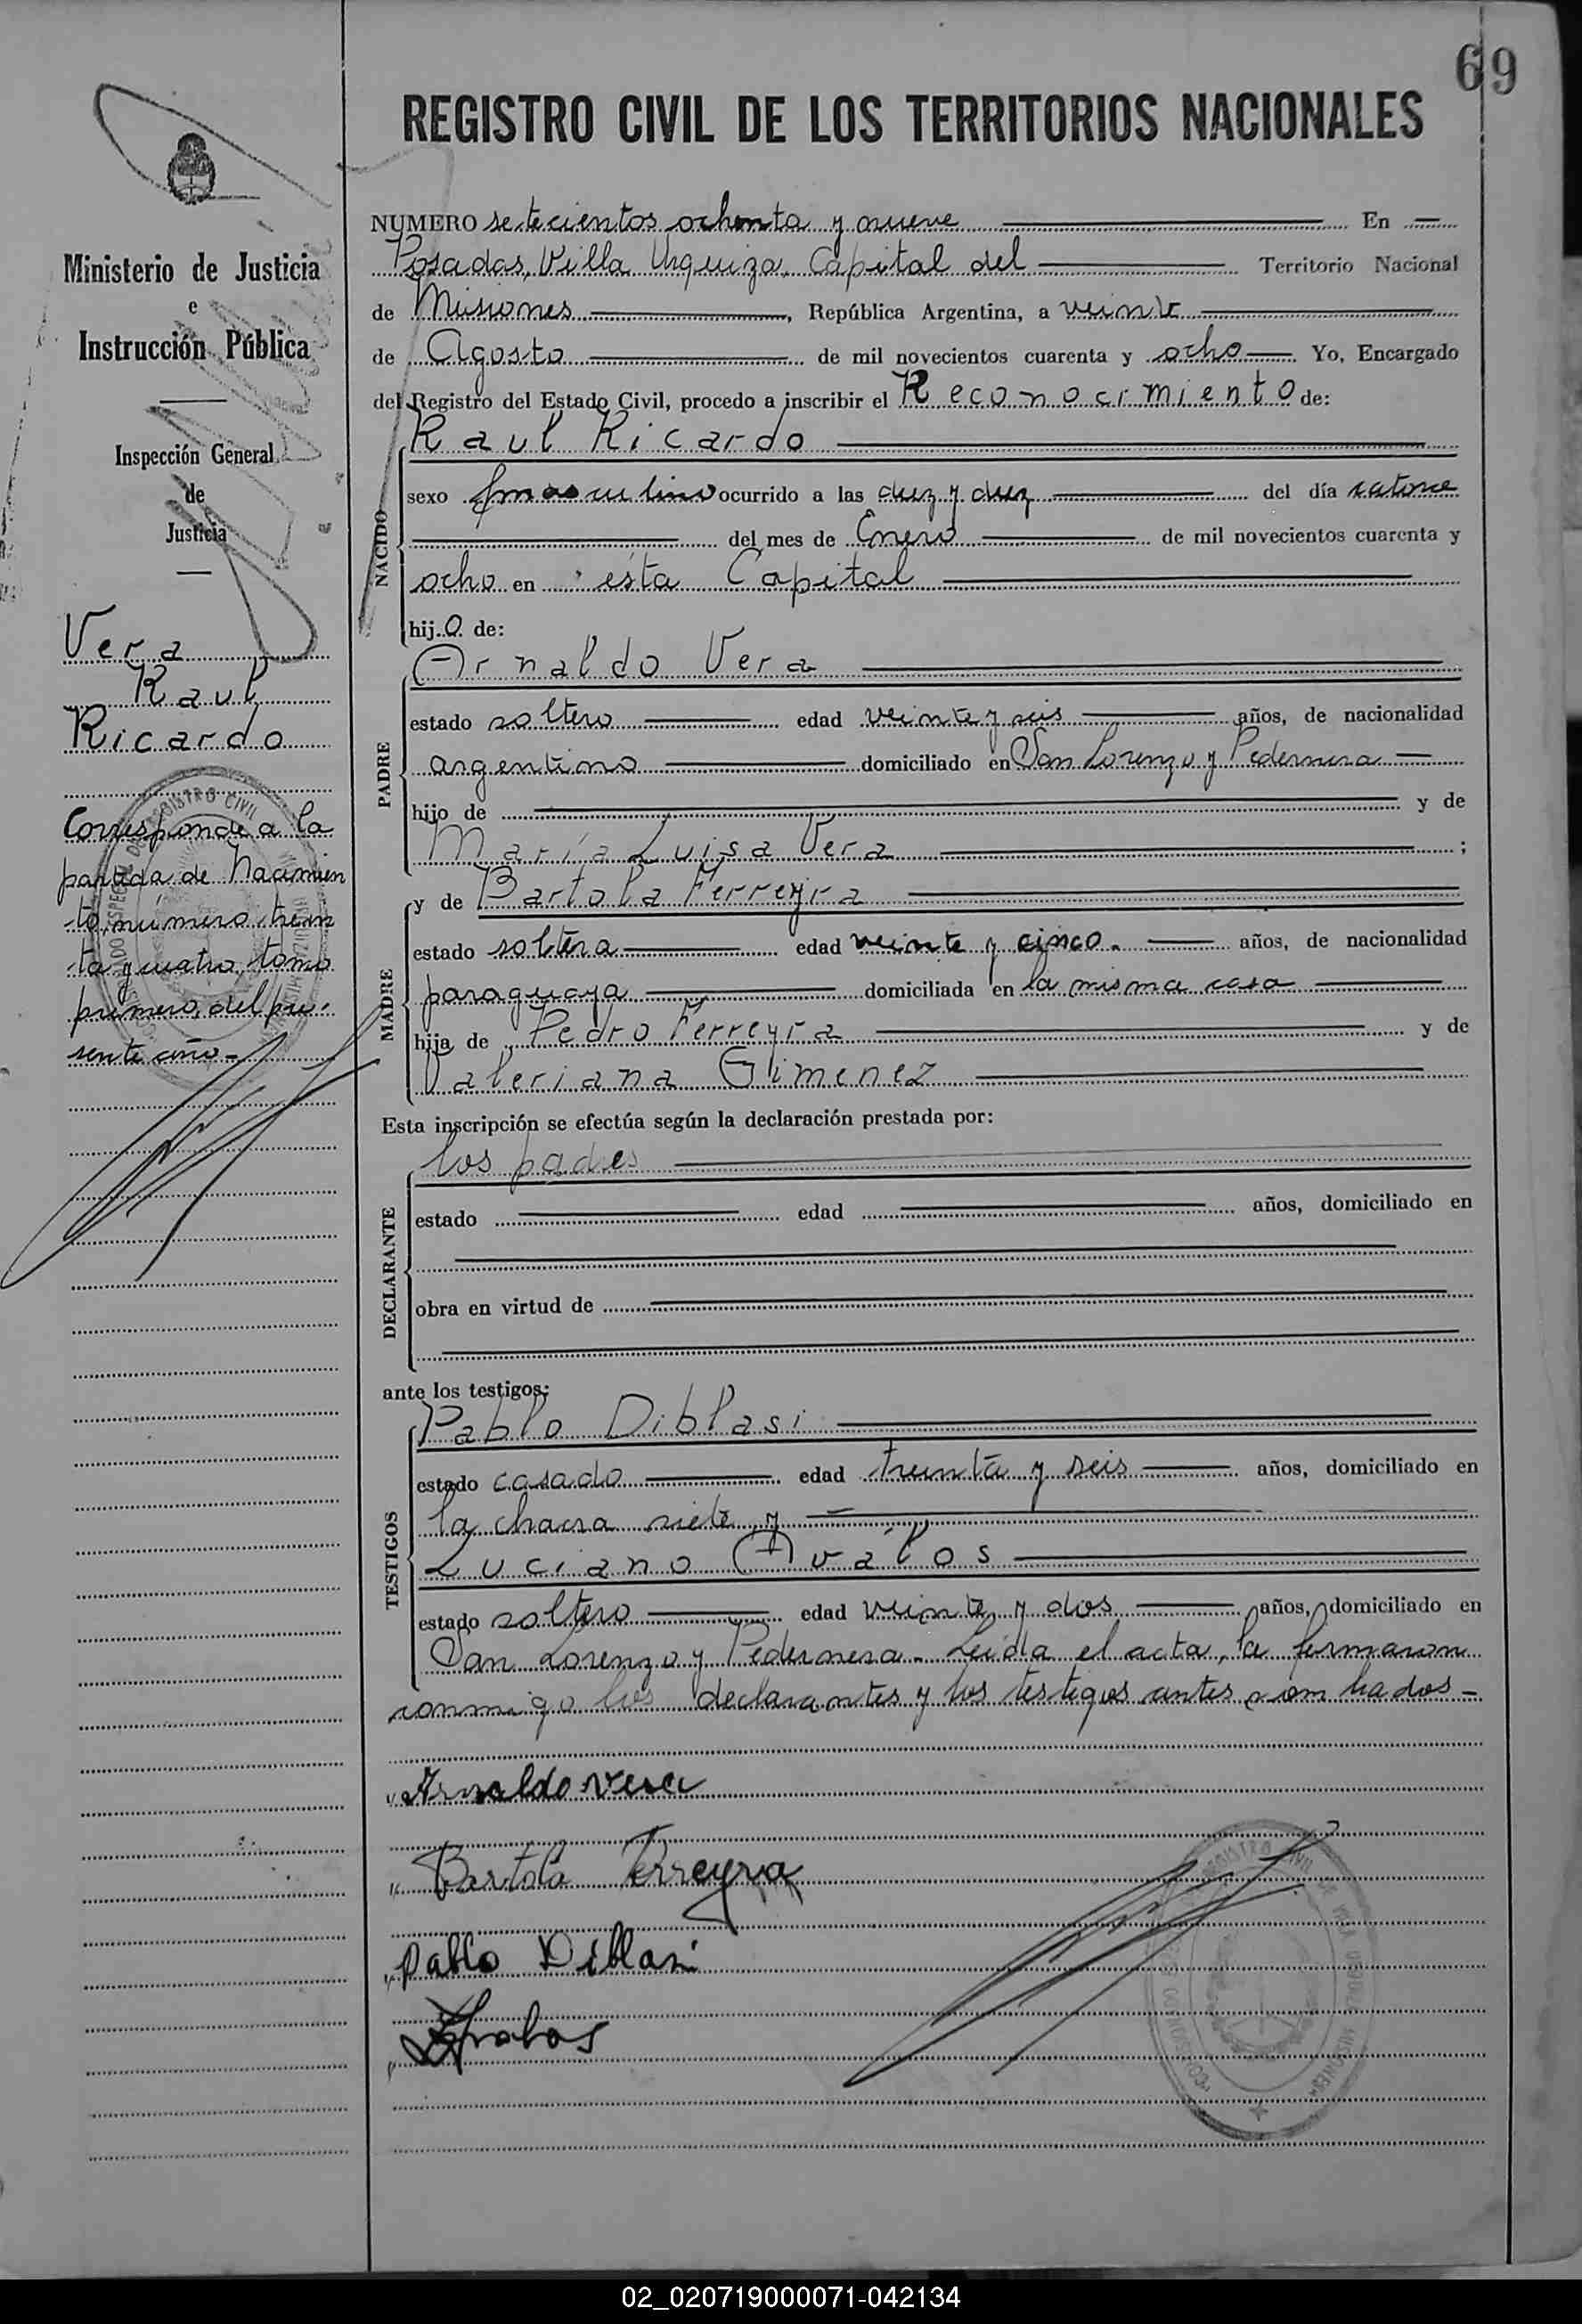 69
REGISTRO CIVIL DE LOS TERRITORIOS NACIONALES
Ministerio de Justicia
e
Instrucción Pública
Inspección General
de
Justicia
Vera
Raul
Ricardo
Corresponde a la
partida de Nacimien
-to, número trein
-ta y cuatro, tomo
primero, del pre-
sente año-
NUMERO setecientos ochenta y nueve En
Posadas, Villa Urquiza, Capital del Territorio Nacional
de Misiones, República Argentina, a veinte
de Agosto de mil novecientos cuarenta y ocho Yo, Encargado
del Registro del Estado Civil, procedo a inscribir el Reconocimiento de:
NACIDO
Raul Ricardo
sexo masculino ocurrido a las diez y diez del día catorce
del mes de Enero de mil novecientos cuarenta y
ocho en ésta Capital
hijo de:
PADRE
Arnaldo Vera
estado soltero edad veinte y seis años, de nacionalidad
argentino domiciliado en San Lorenzo y Pedernera
hijo de y de
María Luisa Vera ;
MADRE
y de Bartola Ferreyra
estado soltera edad veinte y cinco. años, de nacionalidad
paraguaya domiciliada en la misma casa
hija de Pedro Ferreyra y de
Valeriana Gimenez
Esta inscripción se efectúa según la declaración prestada por:
DECLARANTE
los padres
estado edad años, domiciliado en
obra en virtud de
ante los testigos:
TESTIGOS
Pablo Diblasi
estado casado edad treinta y seis años, domiciliado en
la chacra siete, y
Luciano Aválos
estado soltero edad veinte y dos años, domiciliado en
San Lorenzo y Pedernera. Leída el acta, la firmaron
conmigo los declarantes y los testigos antes nombrados-
Arnaldo Vera
Bartola Ferreyra
Pablo Diblasi
02_020719000071-042134